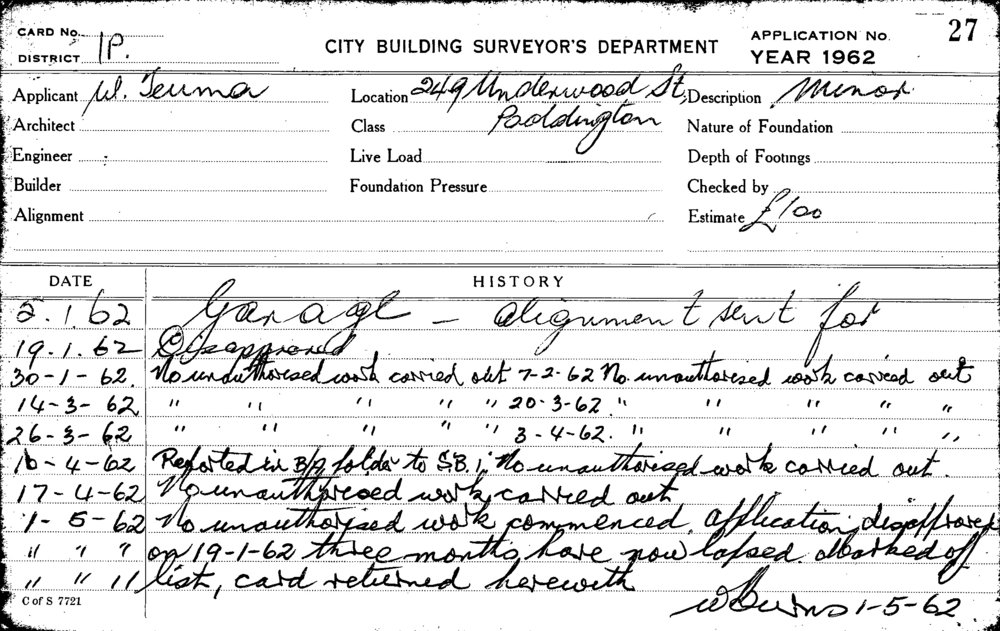 CARD No.
DISTRICT 1P.
CITY BUILDING SURVEYOR'S DEPARTMENT
APPLICATION No. 27
YEAR 1962
Applicant W. Teuma
Location 249 Underwood St,
Description Minor
Architect
Class Paddington
Nature of Foundation
Engineer
Live Load
Depth of Footings
Builder
Foundation Pressure
Checked by
Alignment
Estimate £100
DATE HISTORY
2.1.62 Garage - alignment sent for
19.1.62 Disapproved
30-1-62. No unauthorised work carried out 7-2-62 No unauthorised work carried out
14-3-62 " " " " " 20-3-62. " " " " "
26-3-62 " " " " " 3-4-62. " " " " "
16-4-62 Reported in B/A folder to S.B.I. No unauthorised work carried out.
17-4-62 No unauthorised work carried out
1-5-62 No unauthorised work commenced, application disapproved
" " " on 19-1-62 three months have now lapsed. Marked off
" " " list, card returned herewith
C of S 7721
W Burns 1-5-62